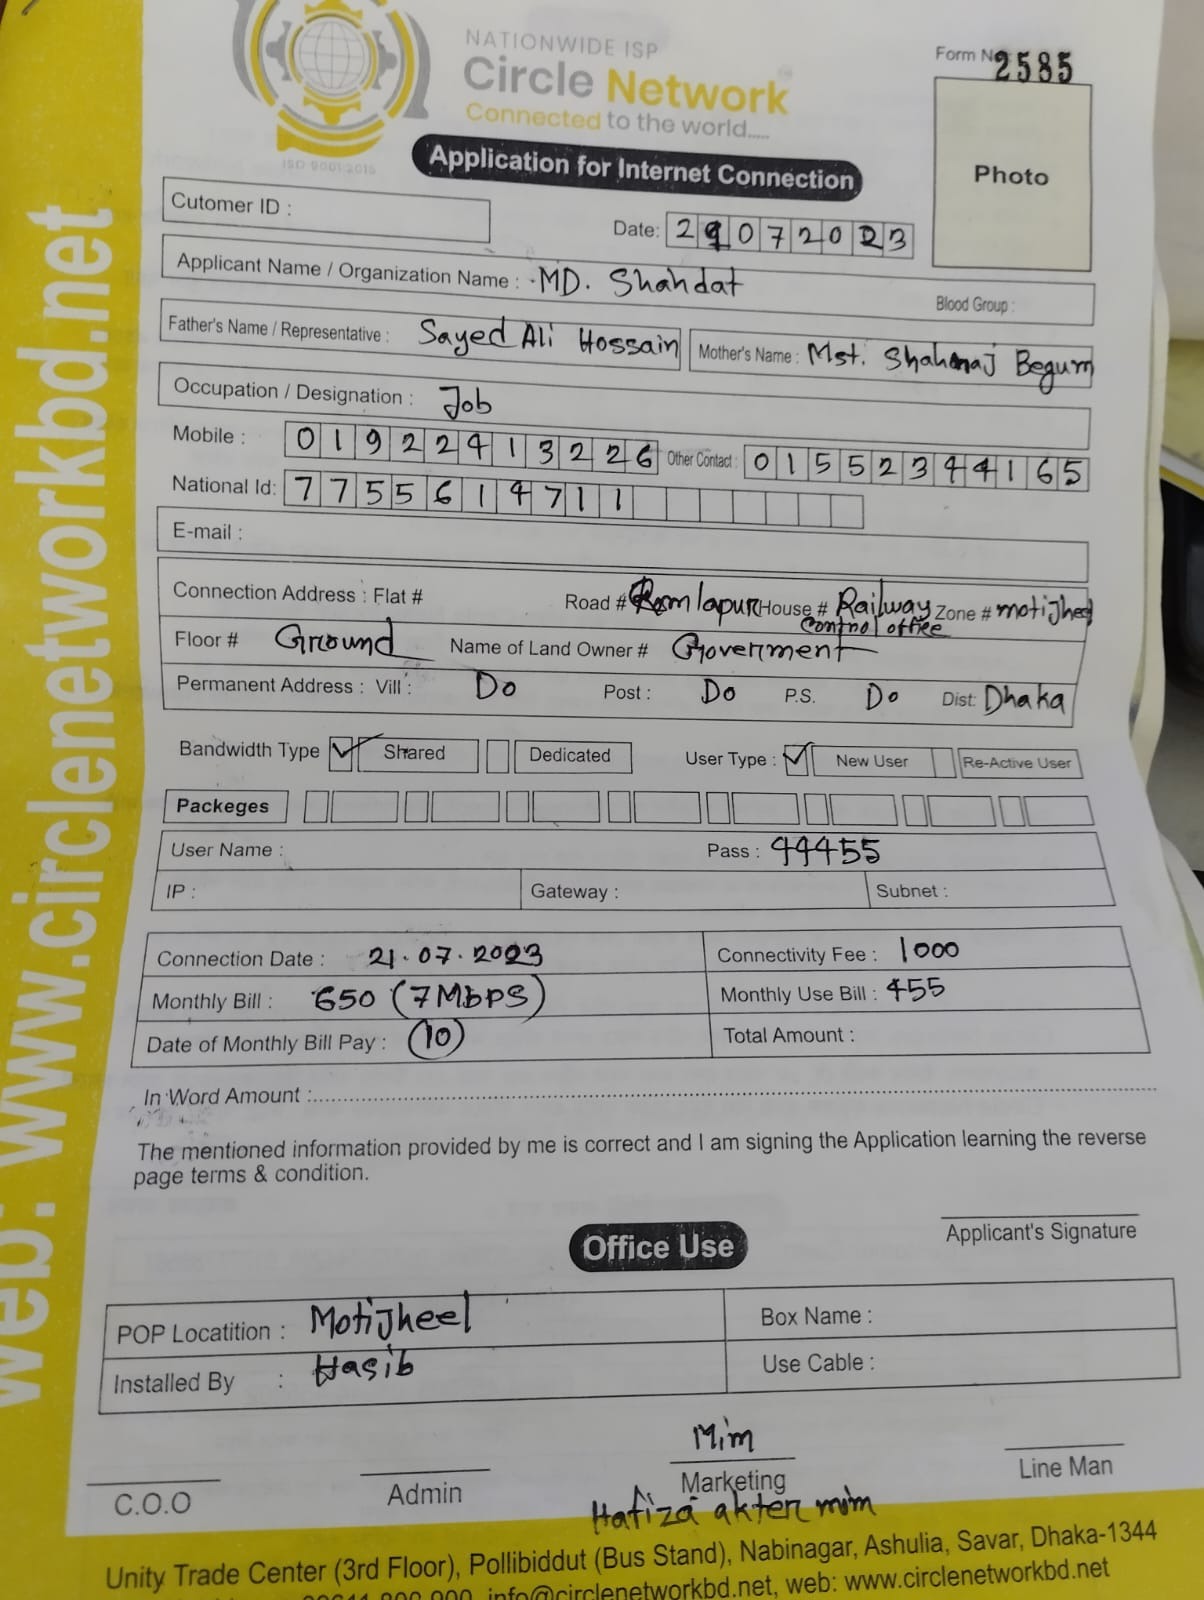 NATIONWIDE ISP
Circle Network
Connected to the world.....
ISO 9001:2015
Form No 2585
Photo
Application for Internet Connection
Cutomer ID :
Date: 29072023
Applicant Name / Organization Name : MD. Shahdat
Blood Group :
Father's Name / Representative : Sayed Ali Hossain Mother's Name : Mst. Shahanaj Begum
Occupation / Designation : Job
Mobile : 01922413226 Other Contact : 01552344165
National Id: 7755614711
E-mail :
Connection Address : Flat # Road # Komlapur House # Railway Control office Zone # motijheel
Floor # Ground Name of Land Owner # Government
Permanent Address : Vill : Do Post : Do P.S. Do Dist: Dhaka
Bandwidth Type ✓ Shared Dedicated User Type : ✓ New User Re-Active User
Packeges
User Name : Pass : 44455
IP : Gateway : Subnet :
Connection Date : 21.07.2023 Connectivity Fee : 1000
Monthly Bill : 650 (7Mbps) Monthly Use Bill : 455
Date of Monthly Bill Pay : 10 Total Amount :
In Word Amount :
The mentioned information provided by me is correct and I am signing the Application learning the reverse
page terms & condition.
Applicant's Signature
Office Use
POP Locatition : Motijheel Box Name :
Installed By : Hasib Use Cable :
Mim
C.O.O Admin Marketing Line Man
Hafiza akter mim
Unity Trade Center (3rd Floor), Pollibiddut (Bus Stand), Nabinagar, Ashulia, Savar, Dhaka-1344
info@circlenetworkbd.net, web: www.circlenetworkbd.net
web: www.circlenetworkbd.net